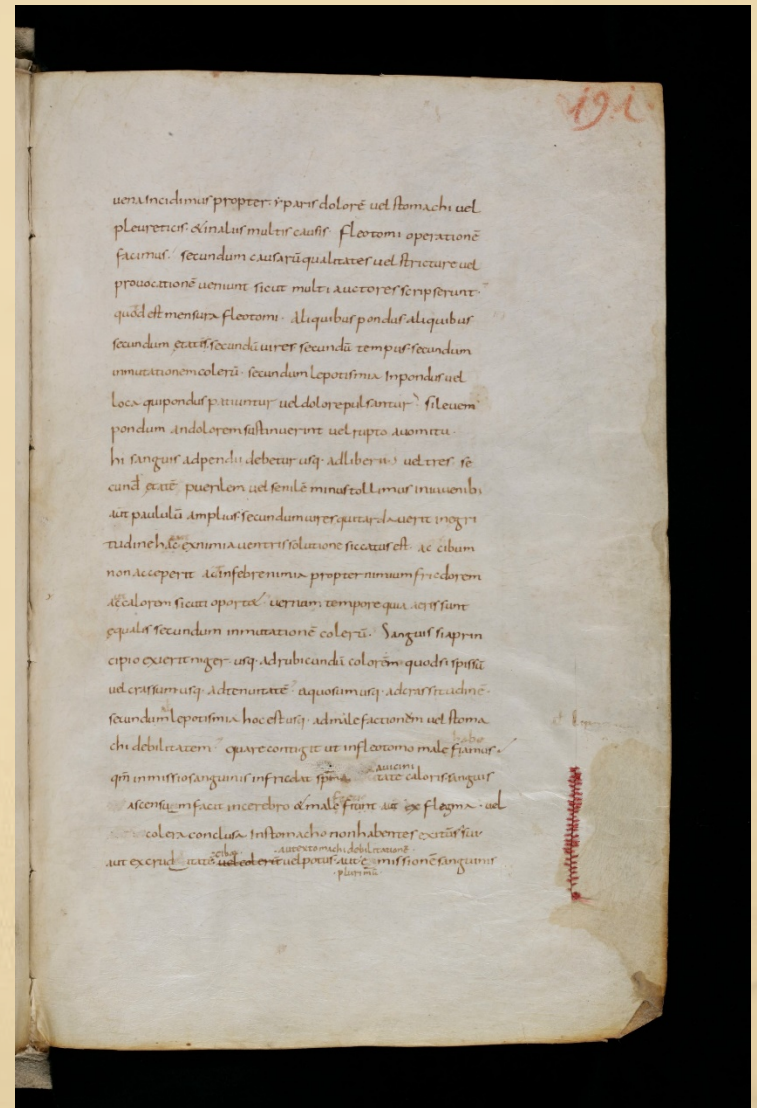 191
uena incidimus propter yparis dolorē uel stomachi uel
pleureticis & in aliis multis causis. fleotomi operationē
facimus. secundum causarū qualitates uel stricture uel
prouocationē ueniunt sicut multi auctores scripserunt.
quod est mensura fleotomi. aliquibus pondus aliquibus
secundum etatis secundū uires secundū tempus secundum
inmutationem colerū. secundum lepotismia In pondus uel
loca qui pondus patiuntur uel dolore pulsantur si leuem
pondum an dolorem sustinuerint uel rupto a uomitu.
hi sanguis adpendi debetur usq. ad liberū uel tres se
cund etatē puerilem uel senilē minus tollimus in iuuenibi
aut paululū amplius secundum uires qui tarda uerit in egri
tudine hac ex nimia uentris solutione siccatus est. ac cibum
non acceperit ac in febre nimia propter nimium fricdorem
ac calorem sicuti oport& uernam tempore quia aeris sunt
equalis secundum inmutationē colerū. Sanguis si aprin
cipio exierit niger usq. ad rubicundū colorem quodsi spissū
uel crassum usq. ad tenuitatē aquosum usq. ad crassitudinē.
secundum lepotismia hoc est usq. ad malefactionem uel stoma
chi debilitatem quare contigit ut in fleotomo male fiamus.
qm̄ in missio sanguinis infricdat tate caloris sanguis
ascensum facit in cerebro & male fiunt aut ex flegma. uel
colera conclusa In stomacho non habentes exitū sur
cibos aut exstomachi debilitationē
aut ex crud itatē uel colerū uel potus aut e missionē sanguinis
plurimā